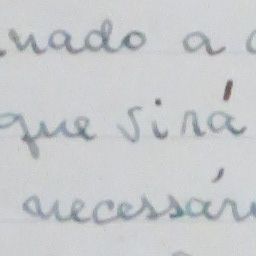 nado a
que sirá
necessár